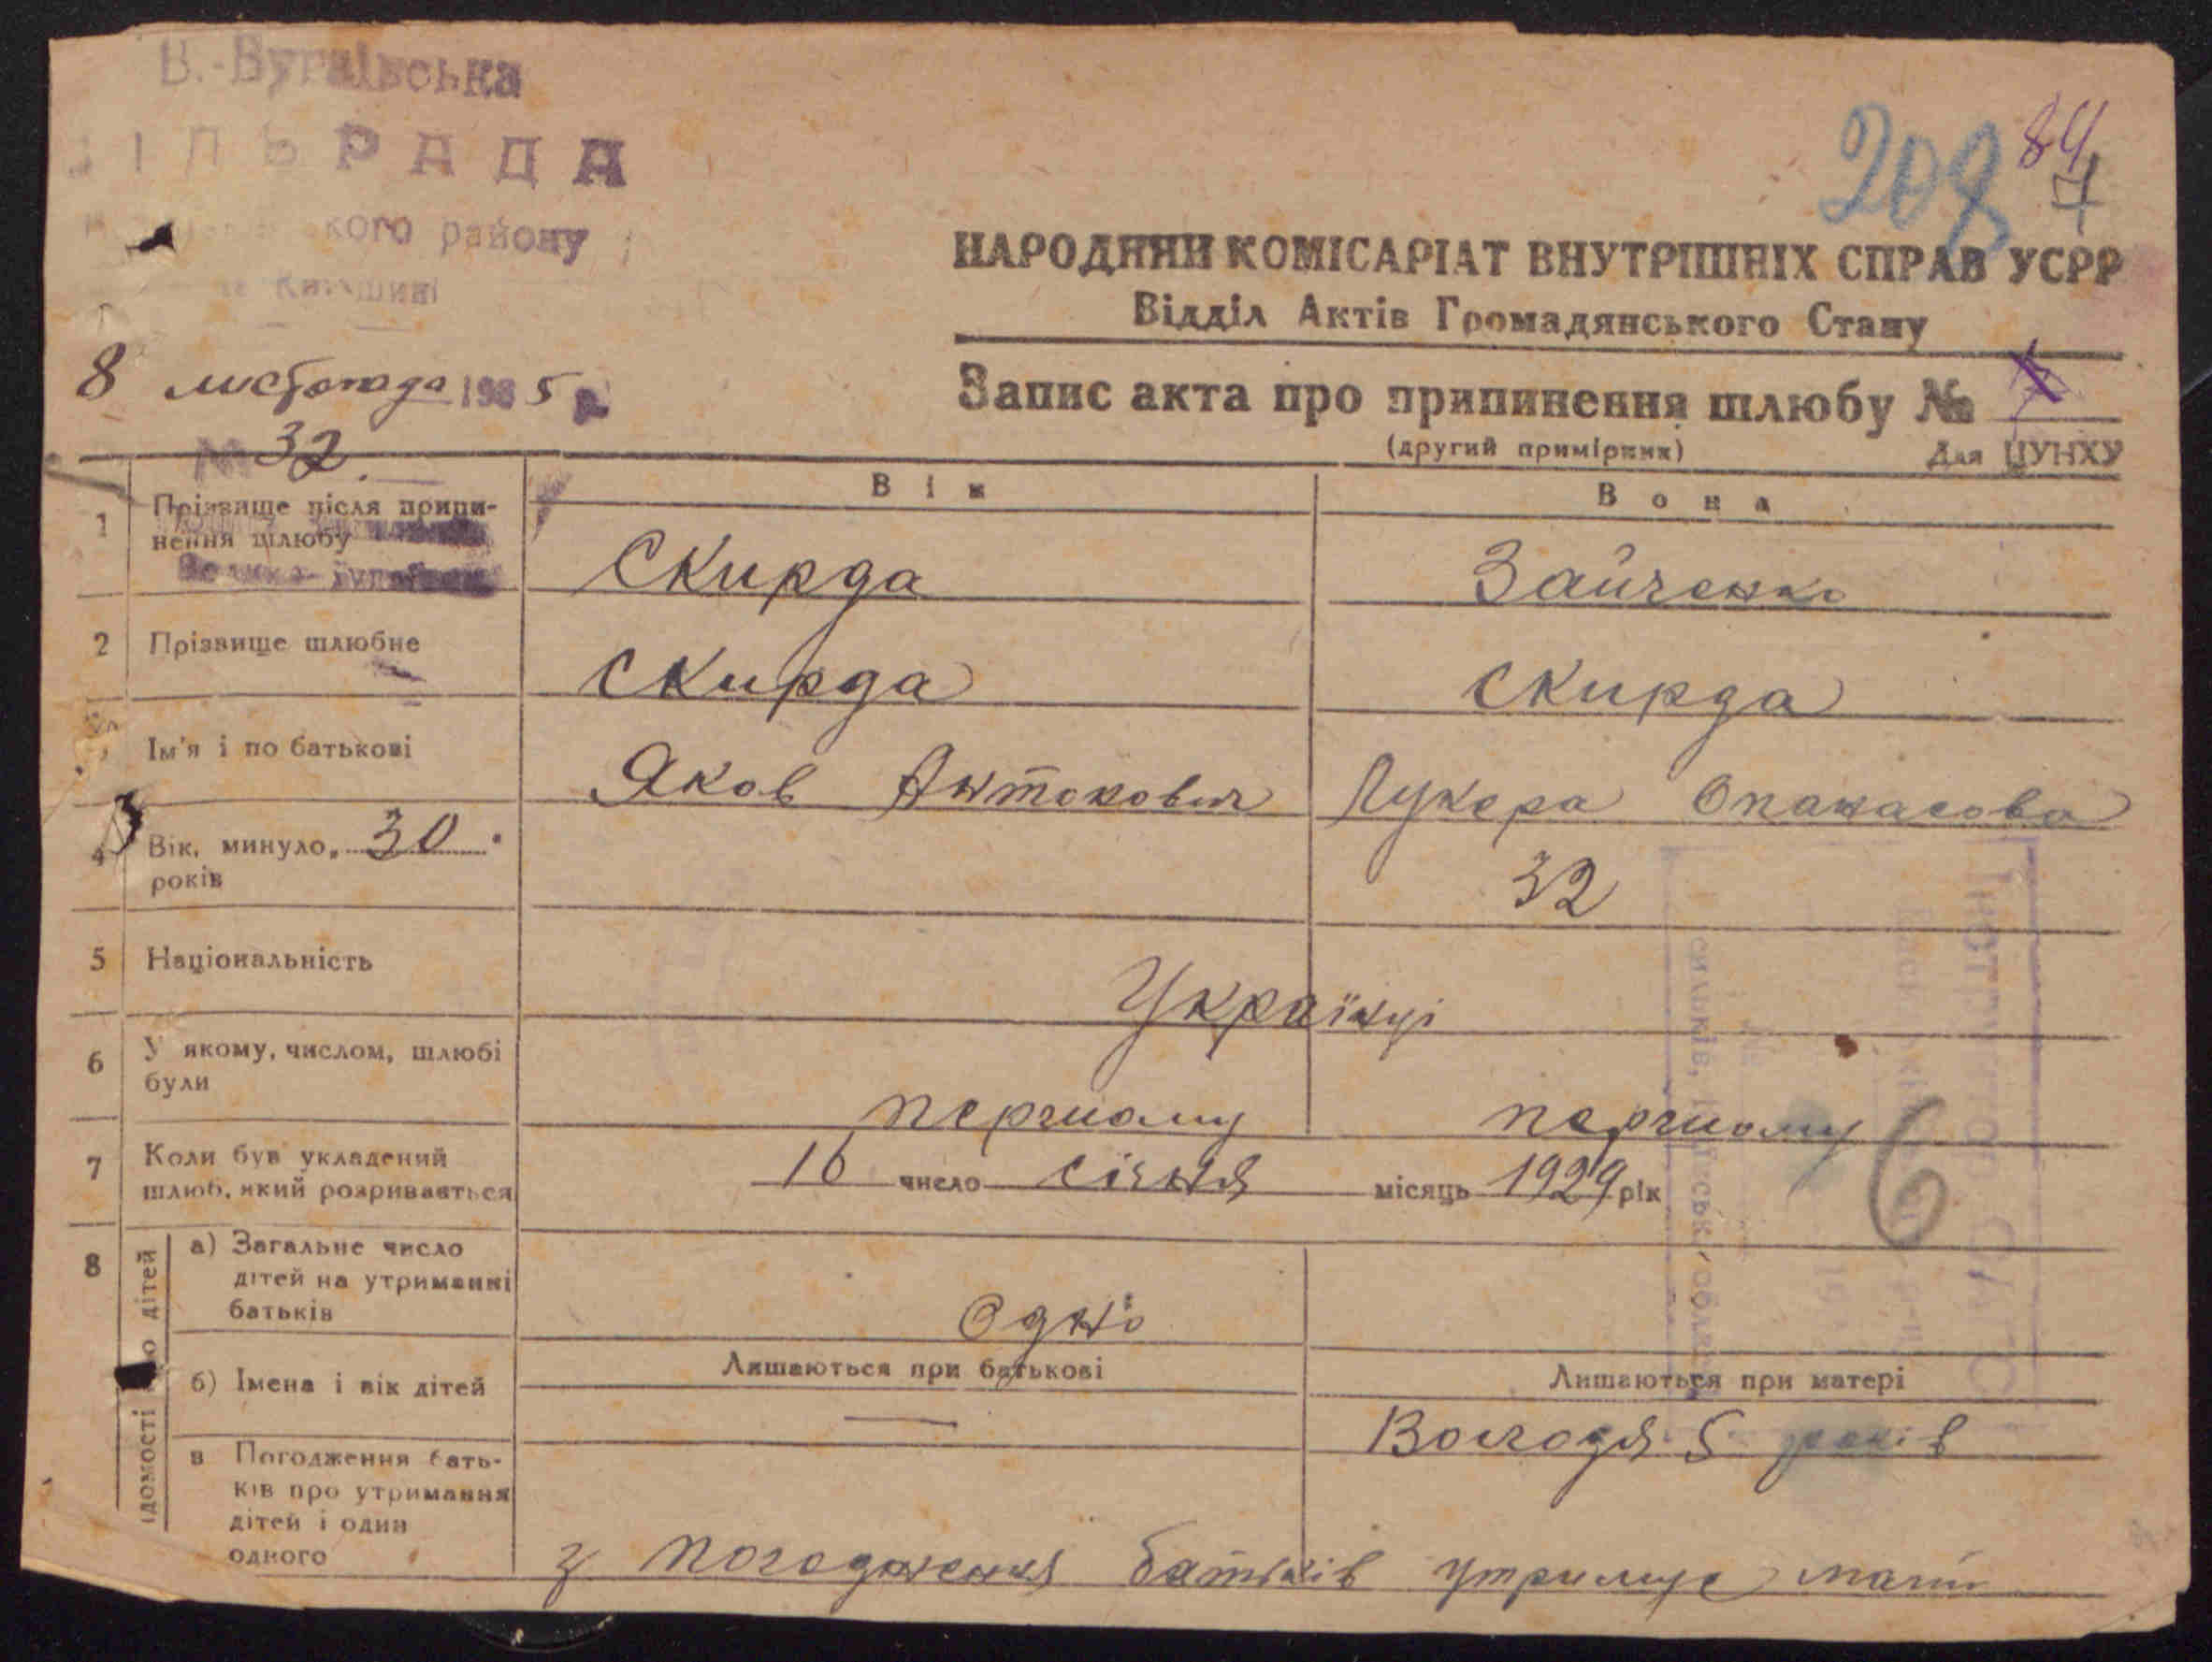 В.-Бугаївська
СІЛЬРАДА
кого району
8 листопада 1935 р
№ 32.
208
84
7
НАРОДНИЙ КОМІСАРІАТ ВНУТРІШНІХ СПРАВ УСРР
Відділ Актів Громадянського Стану
Запис акта про припинення шлюбу №
(другий примірник) Для ЦУНХУ
Він Вона
1 Прізвище після припинення шлюбу Скирда Зайченко
2 Прізвище шлюбне Скирда Скирда
Ім'я і по батькові Яков Антонович Лукера Опанасова
4 Вік, минуло 30 років 32
5 Національність Українці
6 У якому, числом, шлюбі були першому першому
7 Коли був укладений шлюб, який розривається 16 число січня місяць 1929 рік
6
8 ідомості дітей
а) Загальне число дітей на утриманні батьків Одно
б) Імена і вік дітей Лишаються при батькові — Лишаються при матері
Володя 5 років
в Погодження батьків про утримання дітей і один одного
з погодження батьків утримує мати